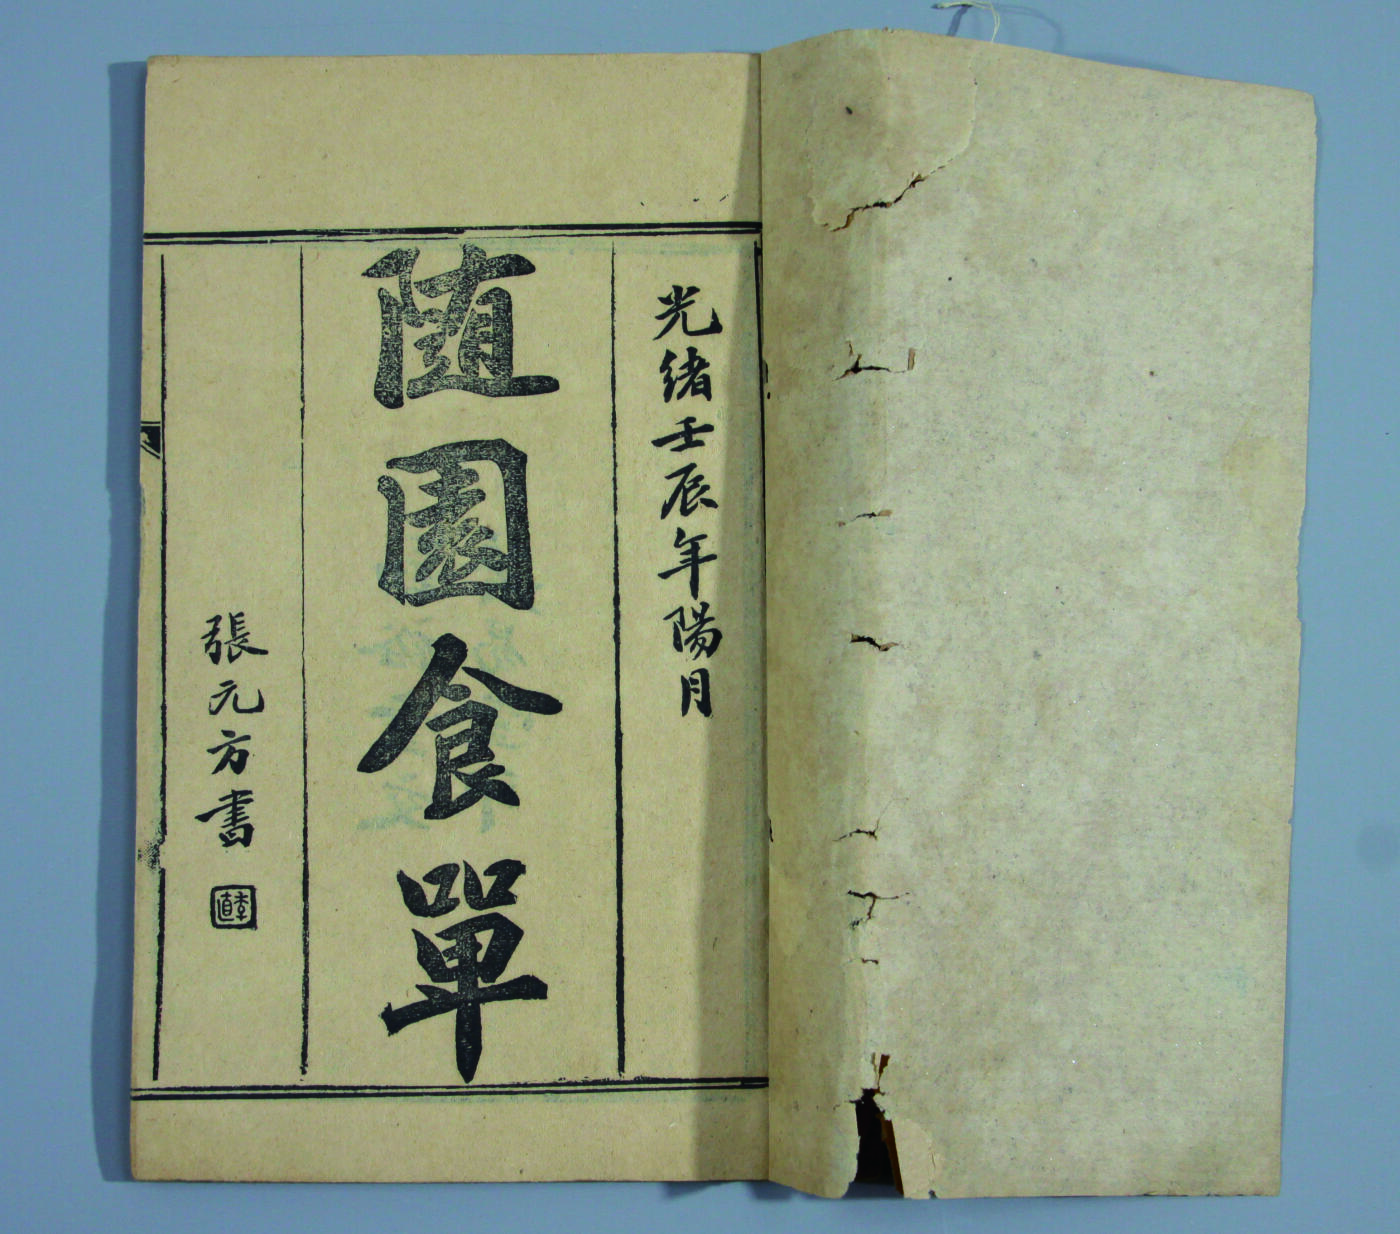 光緒壬辰年陽月
随園食單
張元方書